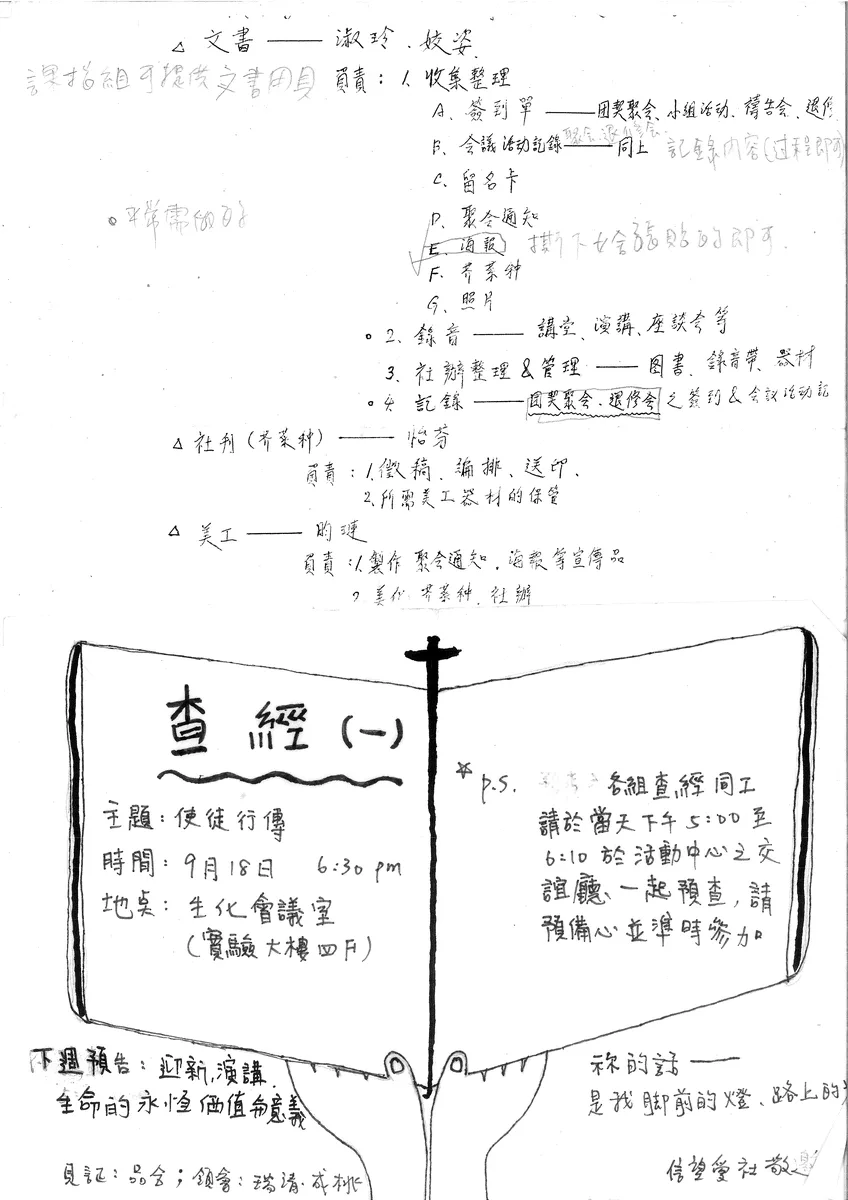 △ 文書 —— 淑玲、姣姿
課指組可提供文書用具 負責：1. 收集整理
A. 簽到單 —— 团契聚会、小組活动、禱告会、退修
聚会、退修会
B. 会議活动記錄 —— 同上 記錄內容(过程即可)
C. 留名卡
D. 聚会通知
。平常需做的
E. 海報 撕下七舍張貼的即可.
F. 芥菜种
G. 照片
。2. 錄音 —— 講堂、演講、座談会等
3. 社辦整理 & 管理 —— 图書、錄音帶、器材
。4. 記錄 —— 团契聚会、退修会 之簽到 & 会议活动記
△ 社刊 (芥菜种) —— 怡芬
負責：1. 徵稿、編排、送印、
2. 所需美工器材的保管
△ 美工 —— 昀漣
負責：1. 製作聚会通知、海報等宣傳品
2. 美化 芥菜种、社辦
查經(一)
主題：使徒行傳
時間：9月18日 6:30 pm
地点：生化會議室
(實驗大樓四F)
☆ p.s. 各組查經同工
請於當天下午5:00至
6:10於活動中心之交
誼廳、一起預查，請
預備心並準時參加
下週預告：迎新演講
生命的永恆價值與意義
見証：品含；領會：瑞清、成桃
祢的話——
是我腳前的燈、路上的光
信望愛社敬邀